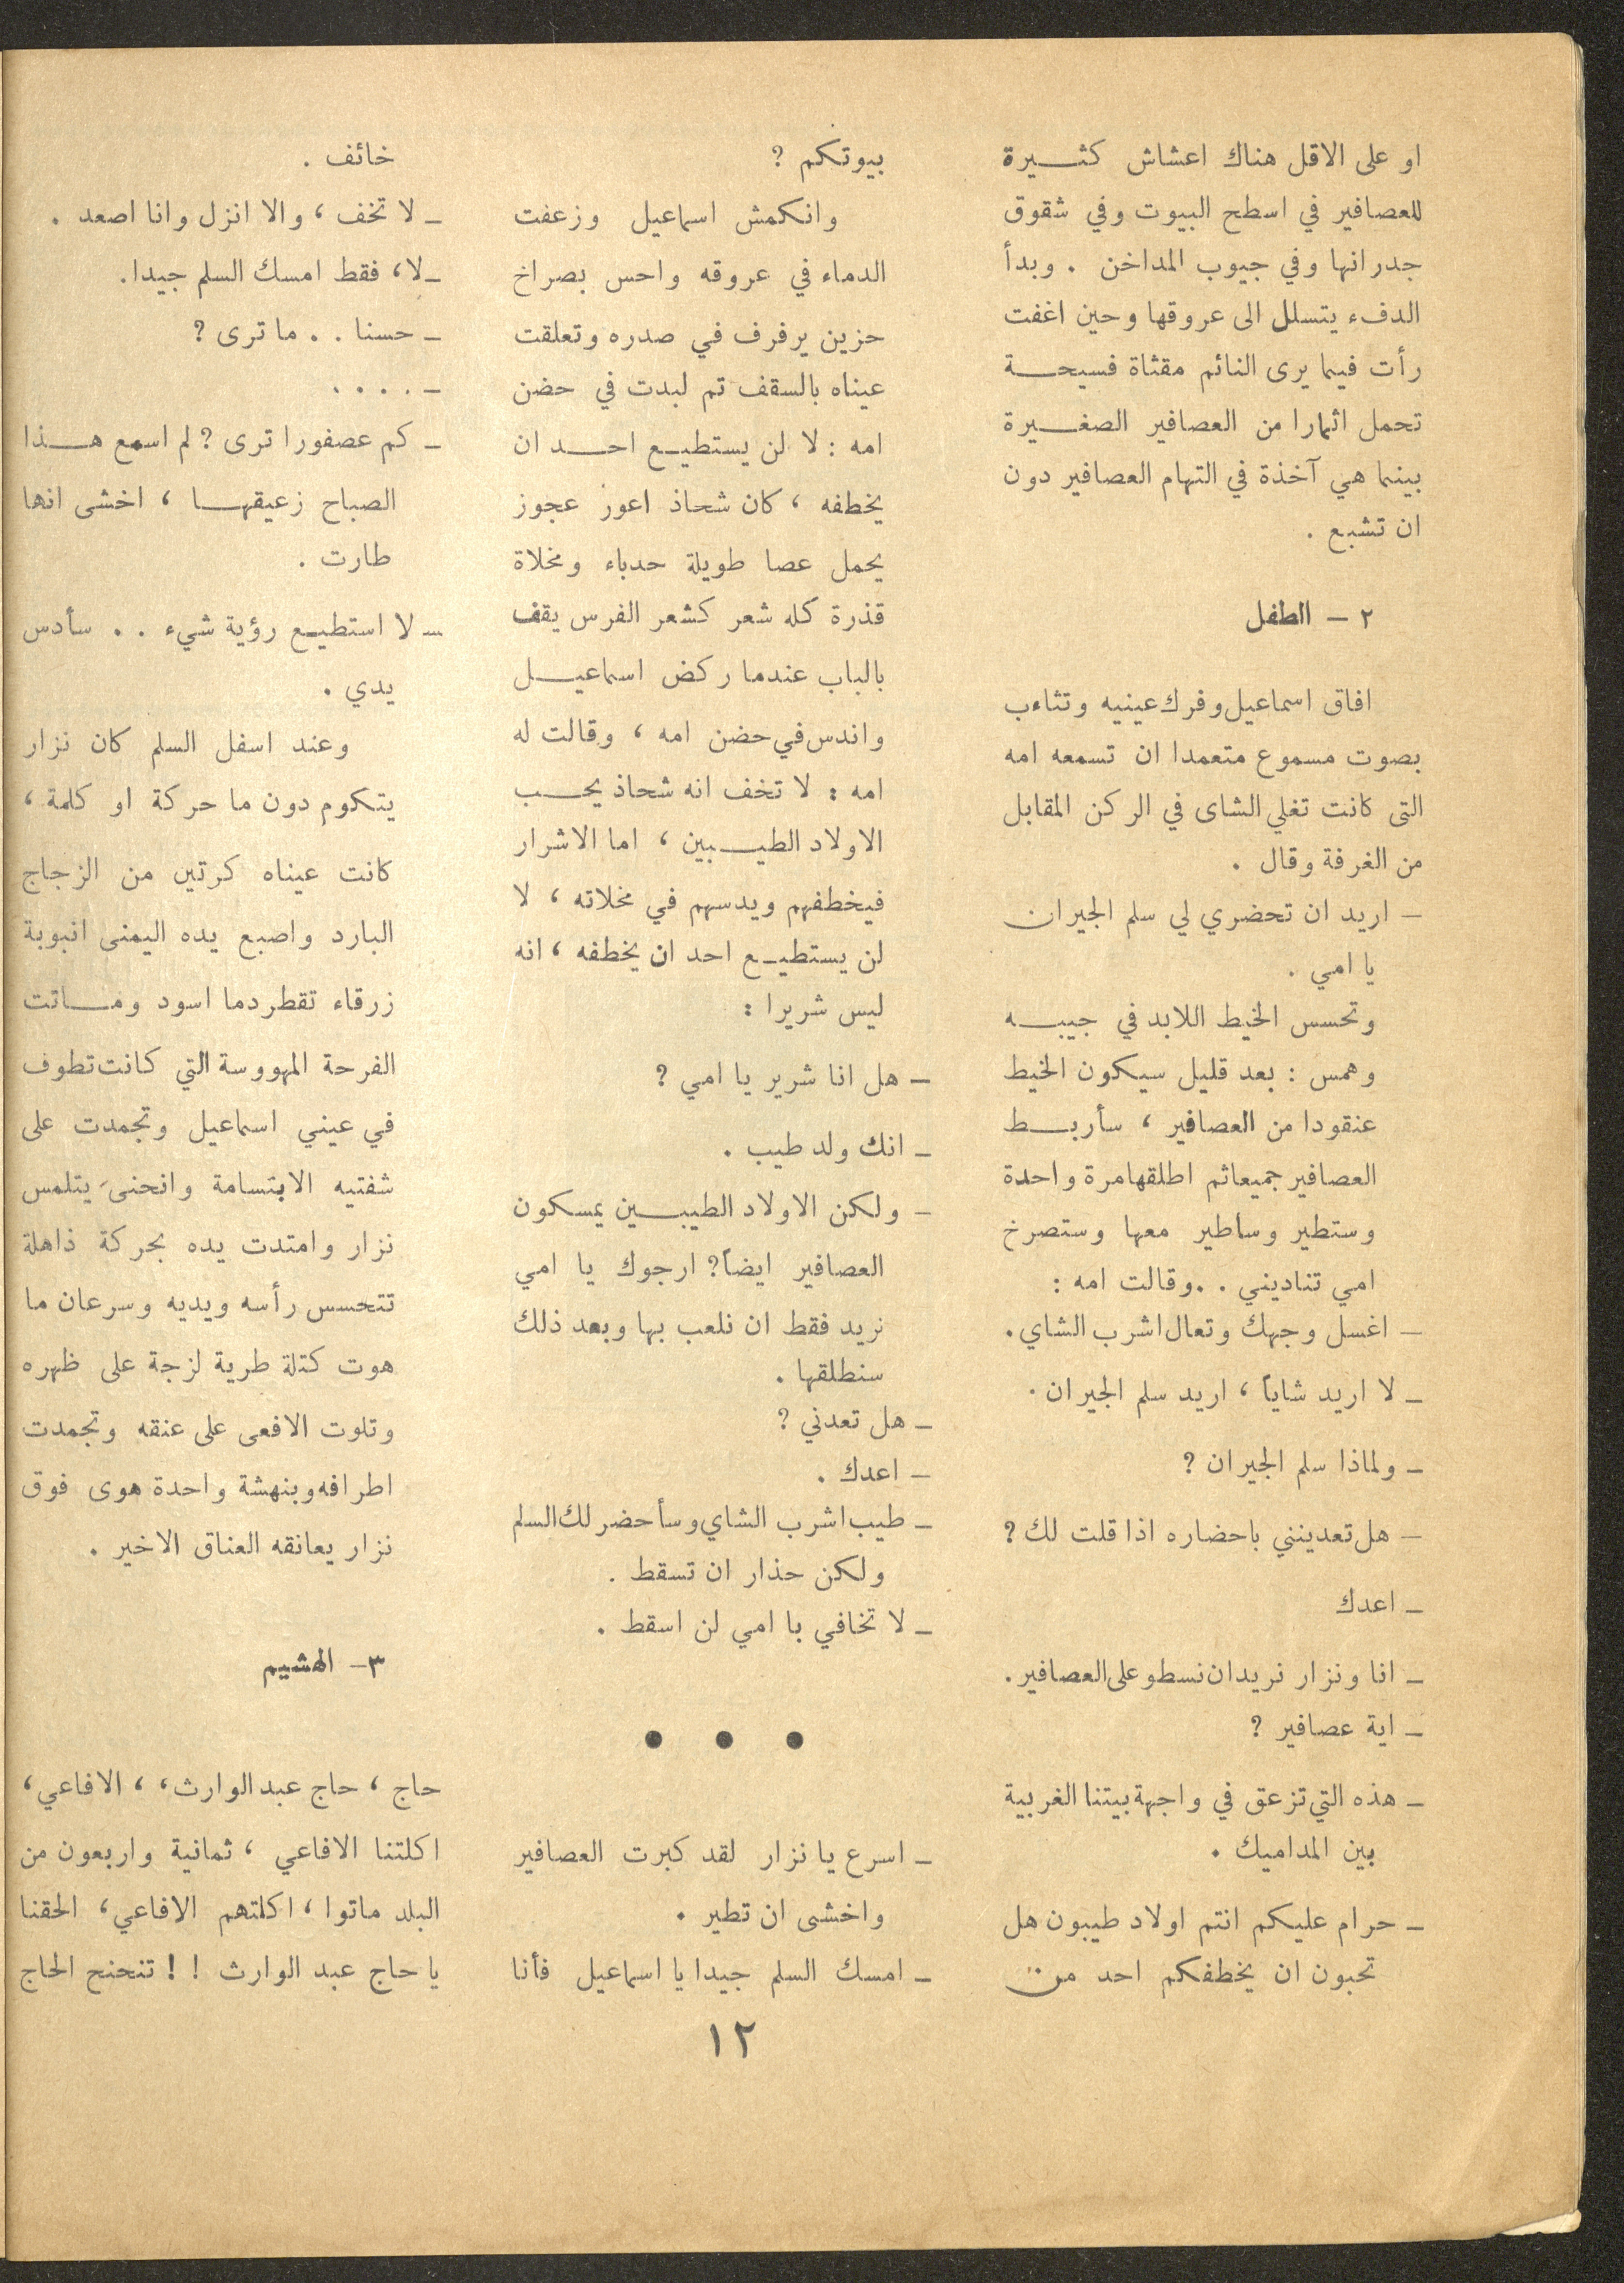 او على الاقل هناك اعشاش كثيرة
للعصافير في اسطح البيوت وفي شقوق
جدرانها وفي جيوب المداخن . وبدأ
الدفء يتسلل الى عروقها وحين اغفت
رأت فيما يرى النائم مقثاة فسيحة
تحمل اثمارا من العصافير الصغيرة
بينما هي آخذة في التهام العصافير دون
ان تشبع .
٢ – الطفل
افاق اسماعيل وفرك عينيه وتثاءب
بصوت مسموع متعمدا ان تسمعه امه
التى كانت تغلي الشاى في الركن المقابل
من الغرفة وقال .
– اريد ان تحضري لي سلم الجيران
يا امي .
وتحسس الخيط اللابد في جيبه
وهمس : بعد قليل سيكون الخيط
عنقودا من العصافير ، سأربط
العصافير جميعا ثم اطلقها مرة واحدة
وستطير وساطير معها وستصرخ
امي تناديني . . وقالت امه :
– اغسل وجهك وتعال اشرب الشاي .
– لا اريد شاياً ، اريد سلم الجيران .
– ولماذا سلم الجيران ؟
– هل تعدينني باحضاره اذا قلت لك ؟
– اعدك
– انا ونزار نريد ان نسطو على العصافير .
– اية عصافير ؟
– هذه التي تزعق في واجهة بيتنا الغربية
بين المداميك .
– حرام عليكم انتم اولاد طيبون هل
تحبون ان يخطفكم احد من
بيوتكم ؟
وانكمش اسماعيل وزعفت
الدماء في عروقه واحس بصراخ
حزين يرفرف في صدره وتعلقت
عيناه بالسقف تم لبدت في حضن
امه : لا لن يستطيع احد ان
يخطفه ، كان شحاذ اعور عجوز
يحمل عصا طويلة حدباء ومخلاة
قذرة كله شعر كشعر الفرس يقف
بالباب عندما ركض اسماعيل
واندس في حضن امه ، وقالت له
امه : لا تخف انه شحاذ يحب
الاولاد الطيبين ، اما الاشرار
فيخطفهم ويدسهم في مخلاته ، لا
لن يستطيع احد ان يخطفه ، انه
ليس شريرا :
– هل انا شرير يا امي ؟
– انك ولد طيب .
– ولكن الاولاد الطيبين يمسكون
العصافير ايضاً ؟ ارجوك يا امي
نريد فقط ان نلعب بها وبعد ذلك
سنطلقها .
– هل تعدني ؟
– اعدك .
– طيب اشرب الشاي وسأحضر لك السلم
ولكن حذار ان تسقط .
– لا تخافي با امي لن اسقط .
● ● ●
– اسرع يا نزار لقد كبرت العصافير
واخشى ان تطير .
– امسك السلم جيدا يا اسماعيل فأنا
خائف .
– لا تخف ، والا انزل وانا اصعد .
– لا ، فقط امسك السلم جيدا .
– حسنا . . ما ترى ؟
– . . . .
– كم عصفورا ترى ؟ لم اسمع هذا
الصباح زعيقها ، اخشى انها
طارت .
– لا استطيع رؤية شيء . . سأدس
يدي .
وعند اسفل السلم كان نزار
يتكوم دون ما حركة او كلمة ،
كانت عيناه كرتين من الزجاج
البارد واصبع يده اليمنى انبوبة
زرقاء تقطر دما اسود وماتت
الفرحة المهووسة التي كانت تطوف
في عيني اسماعيل وتجمدت على
شفتيه الابتسامة وانحنى يتلمس
نزار وامتدت يده بحركة ذاهلة
تتحسس رأسه ويديه وسرعان ما
هوت كتلة طرية لزجة على ظهره
وتلوت الافعى على عنقه وتجمدت
اطرافه وبنهشة واحدة هوى فوق
نزار يعانقه العناق الاخير .
٣– الهشيم
حاج ، حاج عبد الوارث ، ، الافاعي ،
اكلتنا الافاعي ، ثمانية واربعون من
البلد ماتوا ، اكلتهم الافاعي ، الحقنا
يا حاج عبد الوارث ! ! تنحنح الحاج
١٢